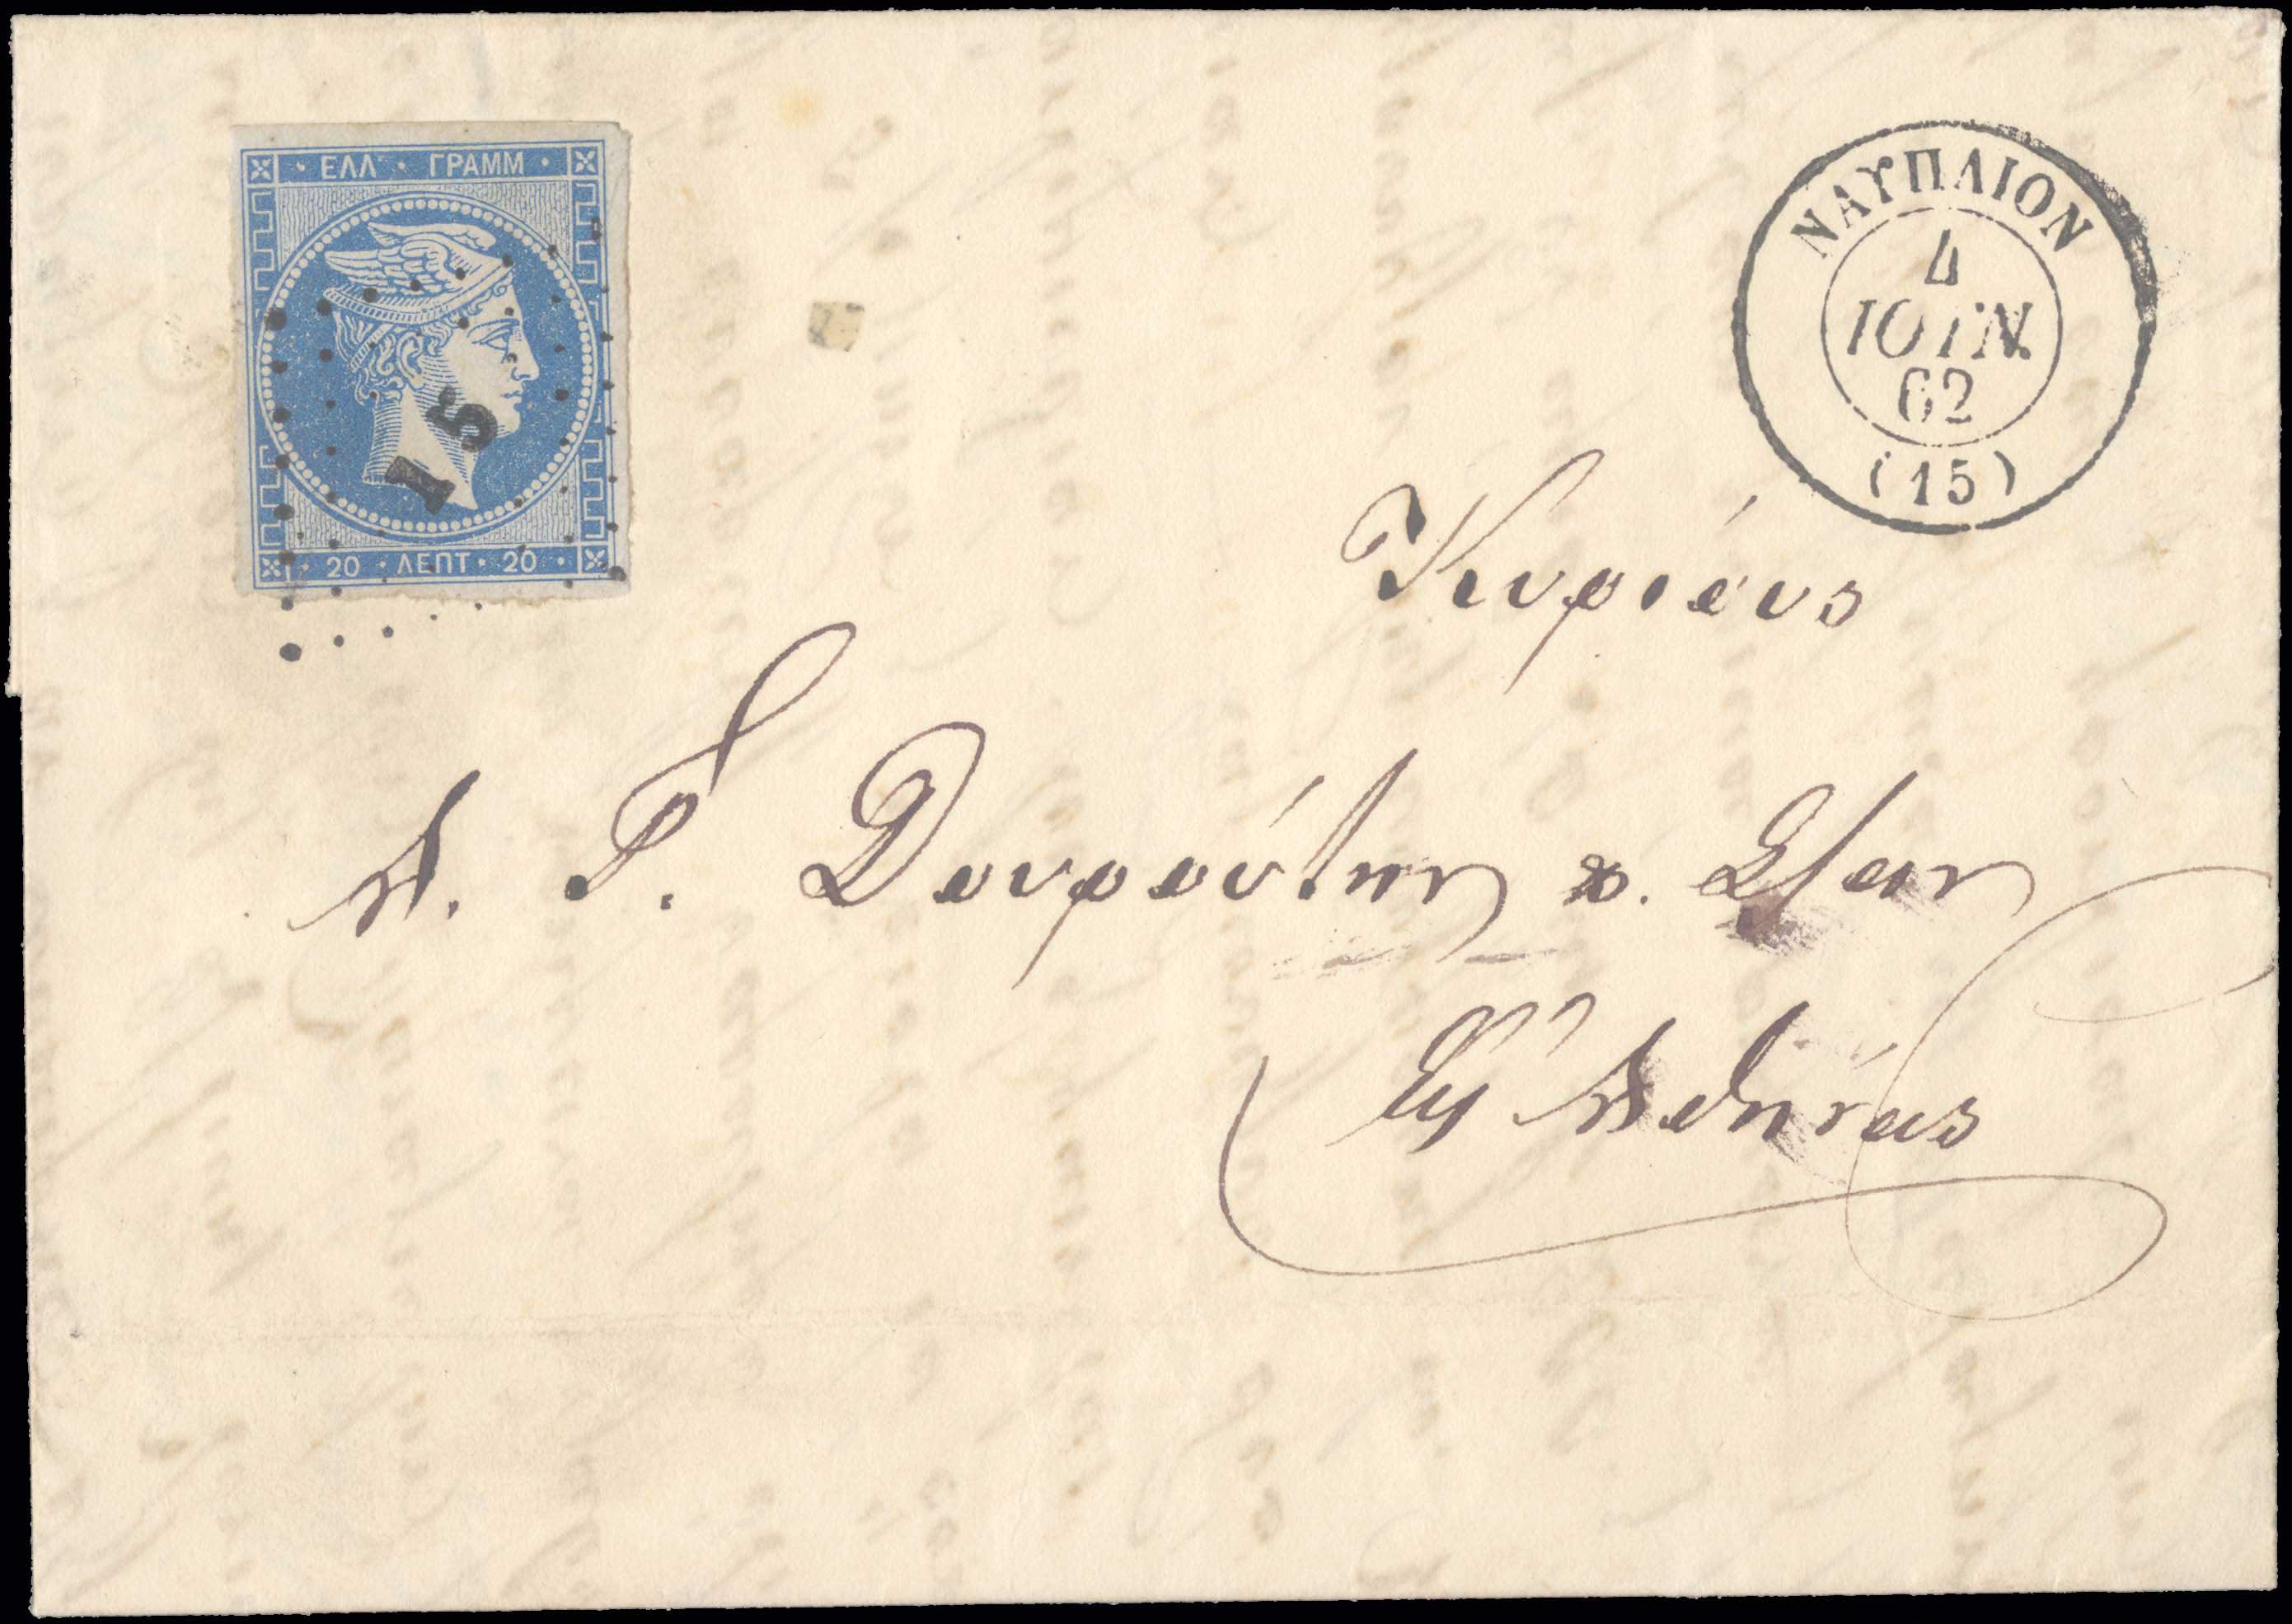 ΕΛΛ · ΓΡΑΜΜ
15
20 · ΛΕΠΤ · 20
ΝΑΥΠΛΙΟΝ
4
ΙΟΥΝ.
62
(15)
Κυρίους
Α. Γ. Δουρούτην κ. Σίαν
Εἰς Ἀθήνας